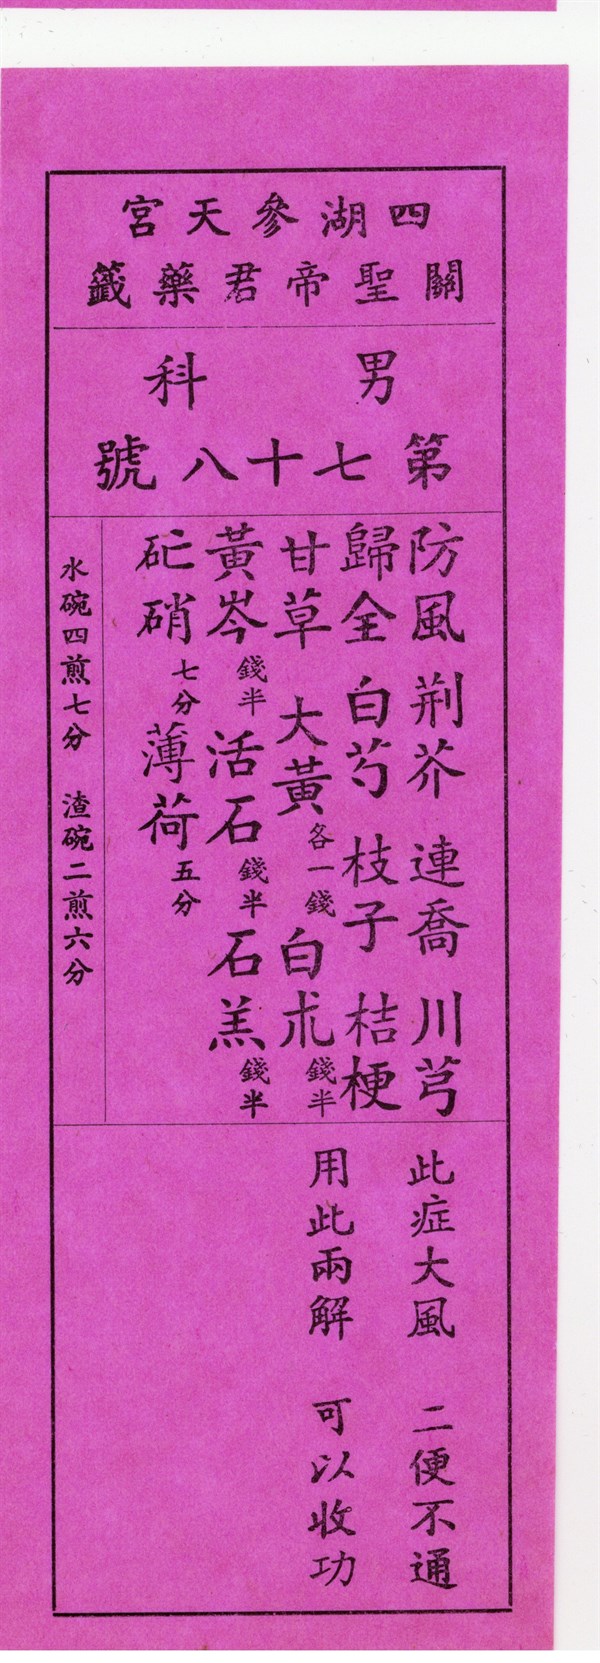 四湖參天宮
關聖帝君藥籤
男科
第七十八號
防風 荆芥 連喬 川芎
歸全 白芍 枝子 桔梗
甘草 大黃各一錢 白朮錢半
黃岑錢半 活石錢半 石羔錢半
砭硝七分 薄荷五分
水碗四煎七分 渣碗二煎六分
此症大風 二便不通
用此兩解 可以收功